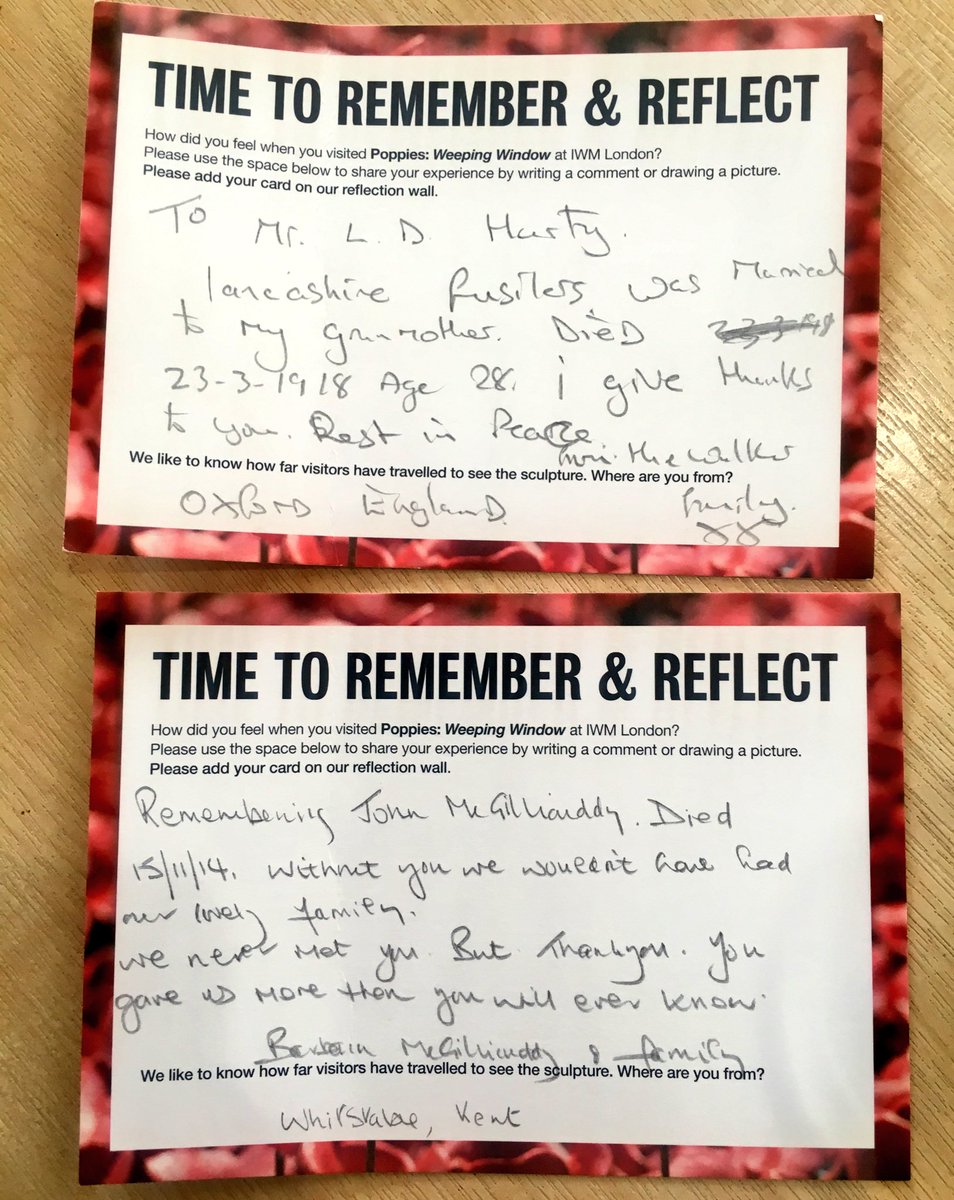 TIME TO REMEMBER & REFLECT
How did you feel when you visited Poppies: Weeping Window at IWM London?
Please use the space below to share your experience by writing a comment or drawing a picture.
Please add your card on our reflection wall.
To
Mr. L. D. Harty.
lancashire fusilers, was Married
to my grunmother. DiED
23-3-1918 Age 28. i give thanks
to you. Rest in Peace.
the walker
We like to know how far visitors have travelled to see the sculpture. Where are you from?
OXforD EnglanD. family.
TIME TO REMEMBER & REFLECT
How did you feel when you visited Poppies: Weeping Window at IWM London?
Please use the space below to share your experience by writing a comment or drawing a picture.
Please add your card on our reflection wall.
Remembering John McGillicuddy. Died
15/11/14. Without you we wouldn't have had
our lovely family.
we never met you. But Thankyou. You
gave us more then you will ever know.
McGillicuddy & family
We like to know how far visitors have travelled to see the sculpture. Where are you from?
Whitstable, Kent